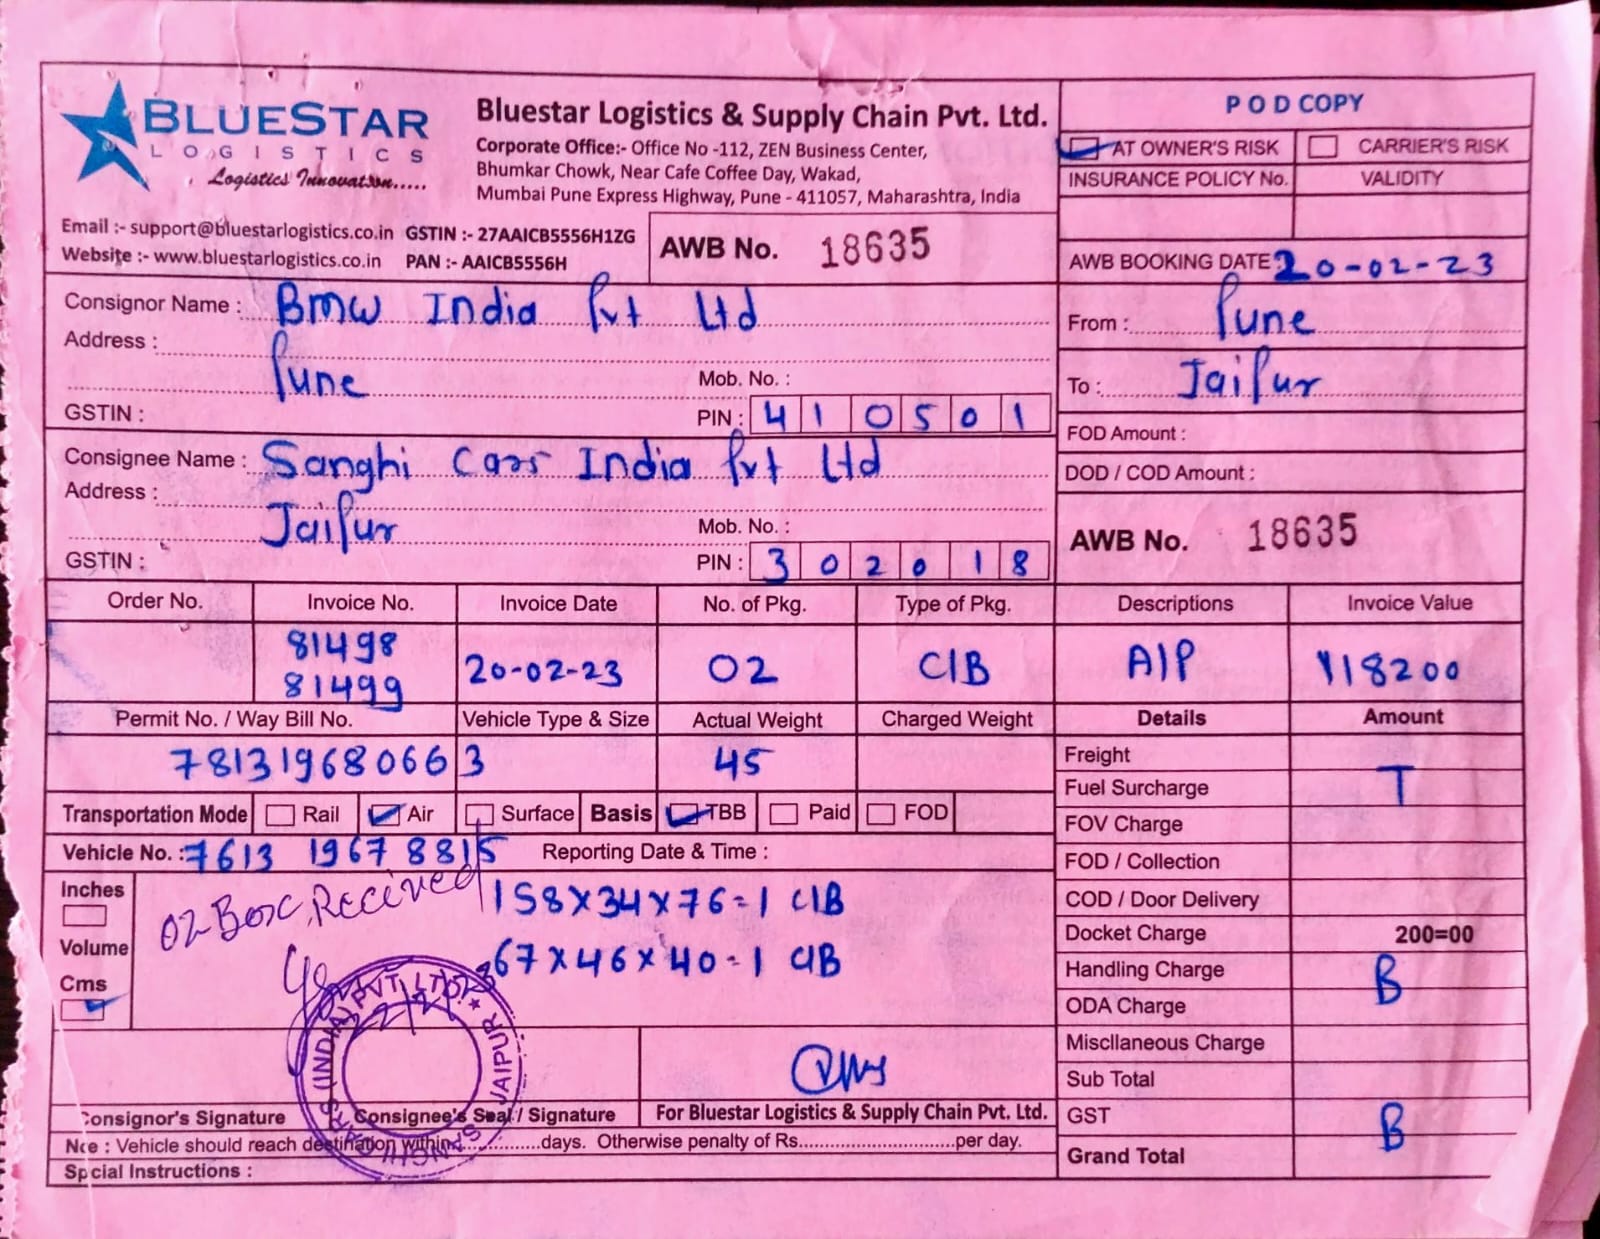 BLUESTAR
LOGISTICS
Logistics Innovation.....
Bluestar Logistics & Supply Chain Pvt. Ltd.
Corporate Office:- Office No -112, ZEN Business Center,
Bhumkar Chowk, Near Cafe Coffee Day, Wakad,
Mumbai Pune Express Highway, Pune - 411057, Maharashtra, India
Email :- support@bluestarlogistics.co.in GSTIN :- 27AAICB5556H1ZG
Website :- www.bluestarlogistics.co.in PAN :- AAICB5556H
AWB No. 18635
POD COPY
AT OWNER'S RISK CARRIER'S RISK
INSURANCE POLICY No. VALIDITY
AWB BOOKING DATE: 20-02-23
Consignor Name : BMW India Pvt Ltd
Address :
Pune Mob. No. :
GSTIN : PIN : 410501
From : Pune
To : Jaipur
Consignee Name : Sanghi Cars India Pvt Ltd
Address :
Jaipur Mob. No. :
GSTIN : PIN : 302018
FOD Amount :
DOD / COD Amount :
AWB No. 18635
Order No. Invoice No. Invoice Date No. of Pkg. Type of Pkg. Descriptions Invoice Value
81498
81499 20-02-23 02 C/B A/P 118200
Permit No. / Way Bill No. Vehicle Type & Size Actual Weight Charged Weight Details Amount
781319680663 45
Transportation Mode Rail Air Surface Basis TBB Paid FOD
Vehicle No. : 7613 1967 8815 Reporting Date & Time :
Inches
Volume
Cms
02 Box Received
158X34X76=1 C/B
67X46X40=1 C/B
Freight
Fuel Surcharge T
FOV Charge
FOD / Collection
COD / Door Delivery
Docket Charge 200=00
Handling Charge B
ODA Charge
Miscllaneous Charge
Sub Total
GST B
Grand Total
SANGHI CARS (INDIA) PVT. LTD. ★ JAIPUR
Consignor's Signature Consignee's Seal / Signature For Bluestar Logistics & Supply Chain Pvt. Ltd.
Nce : Vehicle should reach destination within..............days. Otherwise penalty of Rs.........................per day.
Spcial Instructions :